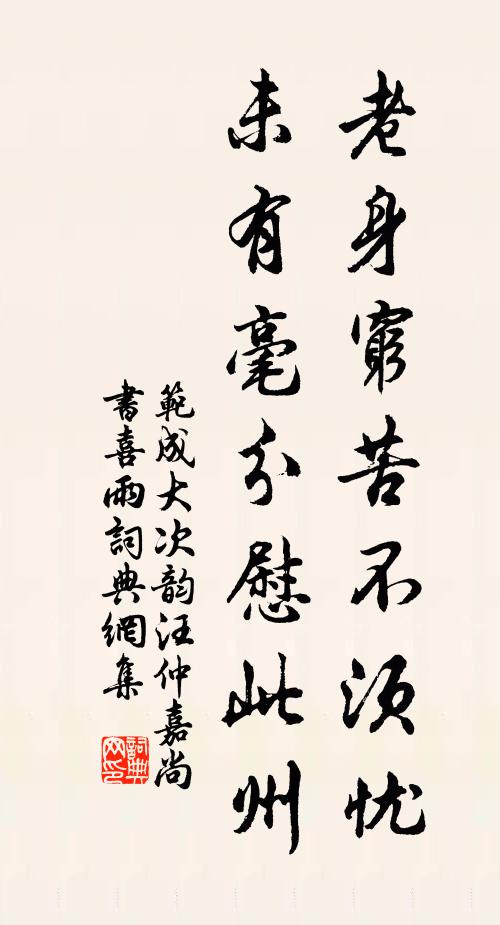 老身窮苦不須忧
未有毫分慰此州
範成大次韵汪仲嘉尚
書喜雨詞典網集
詞典
网印